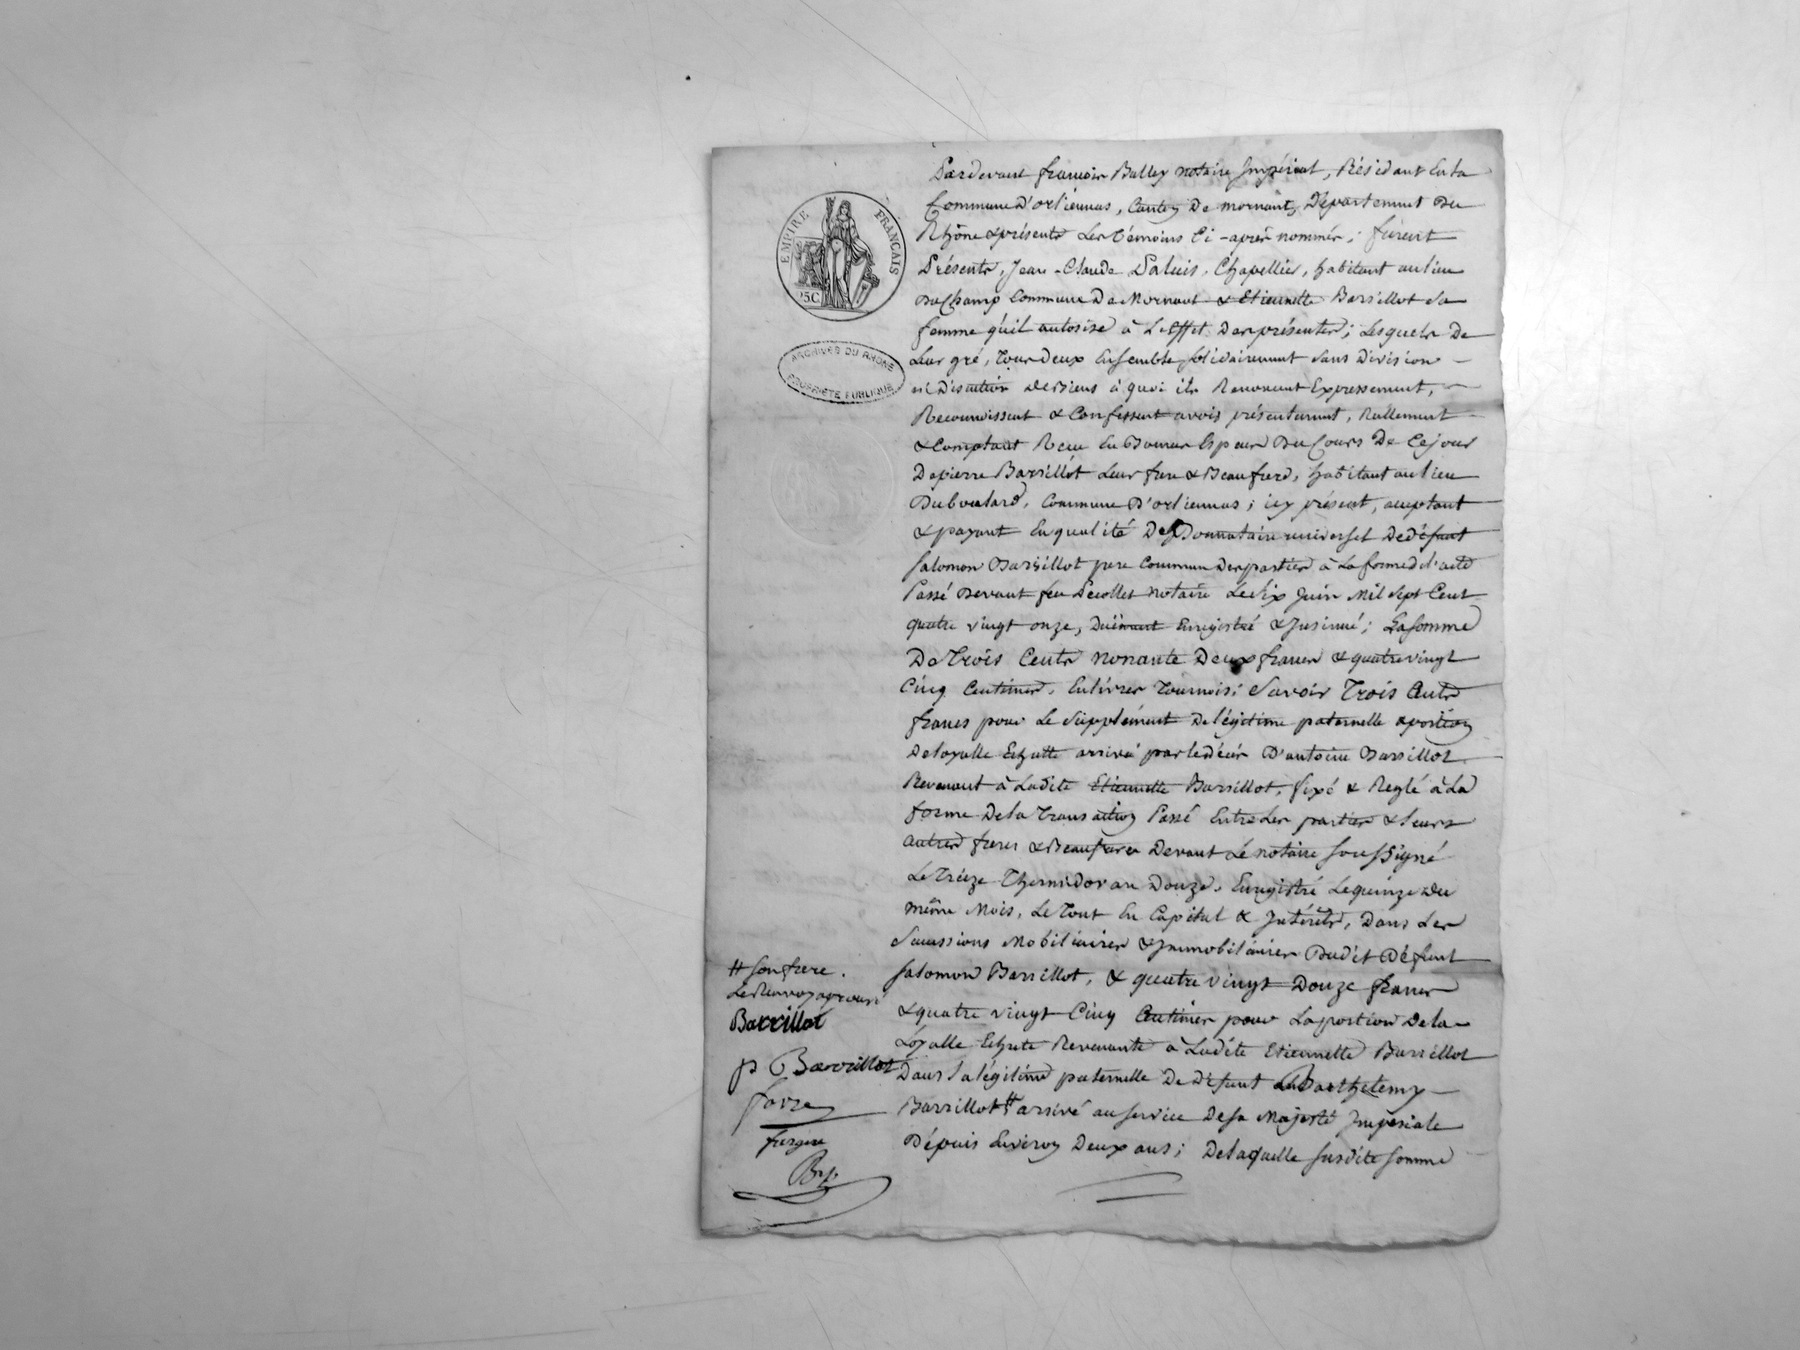 EMPIRE FRANÇAIS
25C
ARCHIVES DU RHONE
PROPRIETE PUBLIQUE
Pardevant françois Balley notaire Impérial, Résidant En la
Commune D'orliénnas, Canton De mornant, Département Du
Rhône & présents Les témoins Ci-après nommés; furent
Présents, Jean-Claude Chapellier, habitant au lieu
Du Champ Commune De Mornant & Etiennette Barrillot Sa
femme qu'il autorise à L'effet Des présentes; Lesquels De
Leur gré, Tous Deux Ensemble solidairement Sans Division
ni Discution De Biens à quoi ils Renoncent Expressement,
Reconnoissent & Confessent avoir présentement, Rëllement
& Comptant Reçu En Bonnes Espèces Du Cours De Cejour
De pierre Barrillot Leur frere & Beaufrere, habitant au lieu
Du boulard, Commune D'orliennas; icy présent, acceptant
& payant En qualité De Donnataire universel De défunt
Salomon Barrillot pere Commun Des parties à La forme de l'acte
Passé Devant feu Decollet notaire Le Six Juin Mil Sept Cent
quatre vingt onze, Duëment Enregistré & Insinué; La Somme
De Trois Cents nonante Deux francs & quatre vingt
Cinq Centimes, En livres Tournois; Savoir Trois Cents
francs pour Le Supplément De légitime paternelle & portion
De loyalle Echutte arrivé par le décès D'antoine Barrillot
Revenant à Ladite Etiennette Barrillot, fixé & Reglé à La
forme De la Transaction Passé Entre Les parties & Leurs
autres freres & Beaufreres Devant Le notaire Soussigné
Le Treize Thermidor an Douze, Enregistré Le quinze Du
même Mois, Le Tout En Capital & Intérêts, Dans Les
Successions Mobiliaires & Immobiliaires Dudit Défunt
Salomon Barrillot, & quatre vingt Douze francs
& quatre vingt Cinq Centimes pour La portion De la
Loyalle Echute Revenante à Ladite Etiennette Barrillot
Dans La légitime paternelle De Défunt Barthelemy
Barrillot # arrivé au Service De Sa Majesté Impériale
Dépuis Environ Deux ans; De laquelle Susdite Somme
# Son frere.
Le Renvoy approuvé
Barrillot
p Barrillot